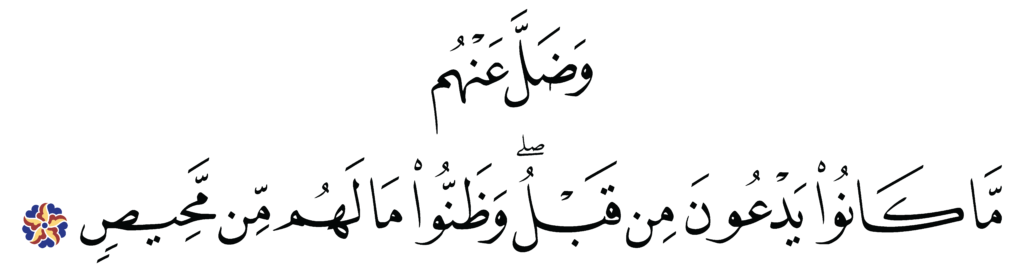 وَضَلَّ عَنْهُم
مَّا كَانُوا۟ يَدْعُونَ مِن قَبْلُ ۖ وَظَنُّوا۟ مَا لَهُم مِّن مَّحِيصٍ